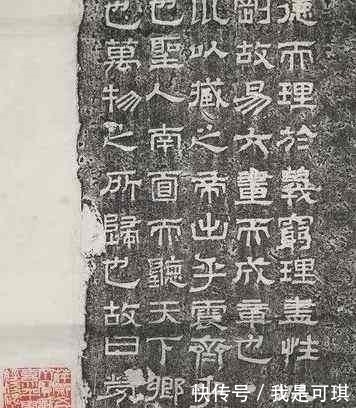 德而理於義窮理盡性
剛故易六畫而成章也
以藏之帝出乎震齊
也聖人南面而聽天下鄉
也萬物之所歸也故曰勞
快传号 / 我是可琪